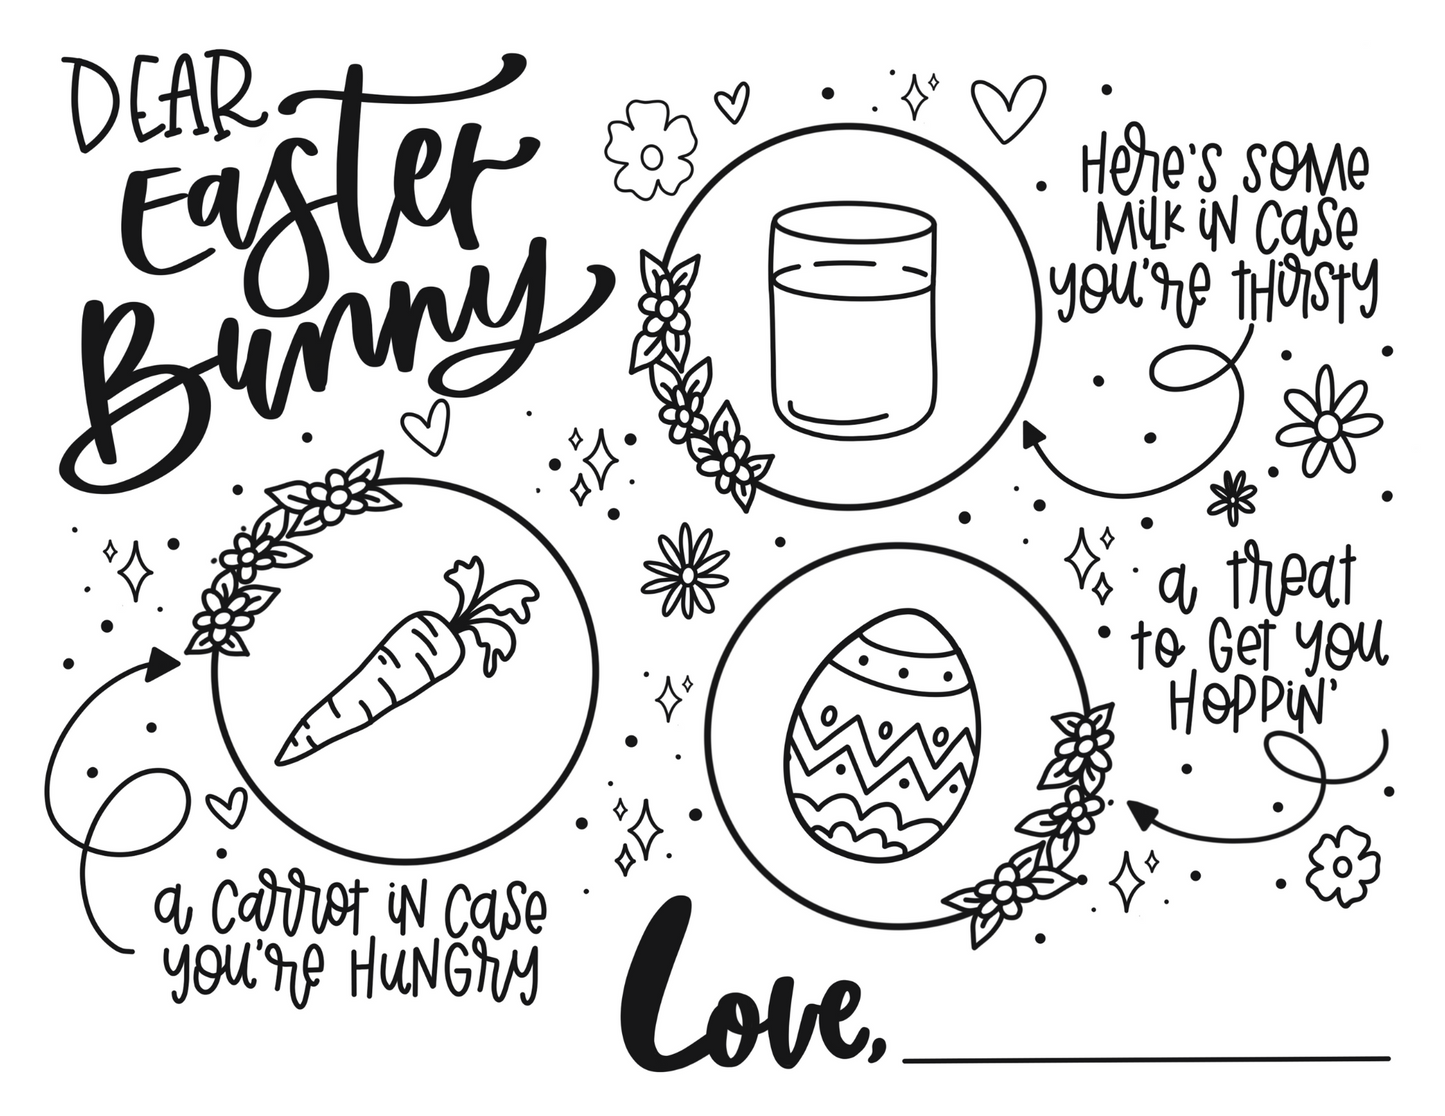 DEAR
Easter
Bunny
Here's some
milk in case
you're thirsty
a treat
to get you
hoppin'
a carrot in case
you're hungry
Love,